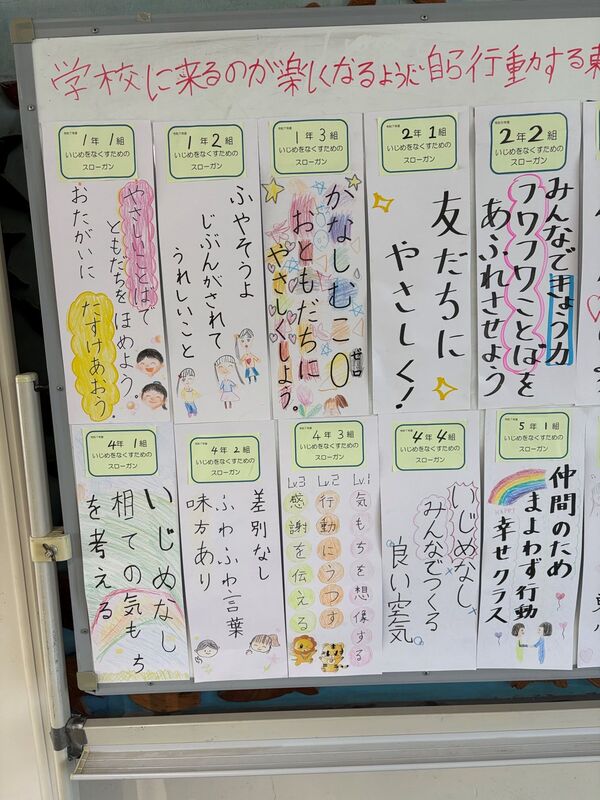 学校に来るのが楽しくなるように自ら行動する
令和7年度
1年1組
いじめをなくすための
スローガン
やさしいことばで
ともだちをほめよう。
おたがいに
たすけあおう。
令和7年度
1年2組
いじめをなくすための
スローガン
ふやそうよ
じぶんがされて
うれしいこと
令和7年度
1年3組
いじめをなくすための
スローガン
かなしむこ0
ゼロ
おともだちに
やさしくしよう。
令和7年度
2年1組
いじめをなくすための
スローガン
友だちに
やさしく!
令和7年度
2年2組
いじめをなくすための
スローガン
みんなできょう力
フワフワことばを
あふれさせよう
令和7年度
4年1組
いじめをなくすための
スローガン
いじめなし
相手の気もち
を考える
令和7年度
4年2組
いじめをなくすための
スローガン
差別なし
ふわふわ言葉
味方あり
令和7年度
4年3組
いじめをなくすための
スローガン
Lv.1 気もちを想像する
Lv.2 行動にうつす
Lv.3 感謝を伝える
令和7年度
4年4組
いじめをなくすための
スローガン
いじめなし
みんなでつくる
良い空気
令和7年度
5年1組
いじめをなくすための
スローガン
仲間のため
まよわず行動
幸せクラス
HAPPY